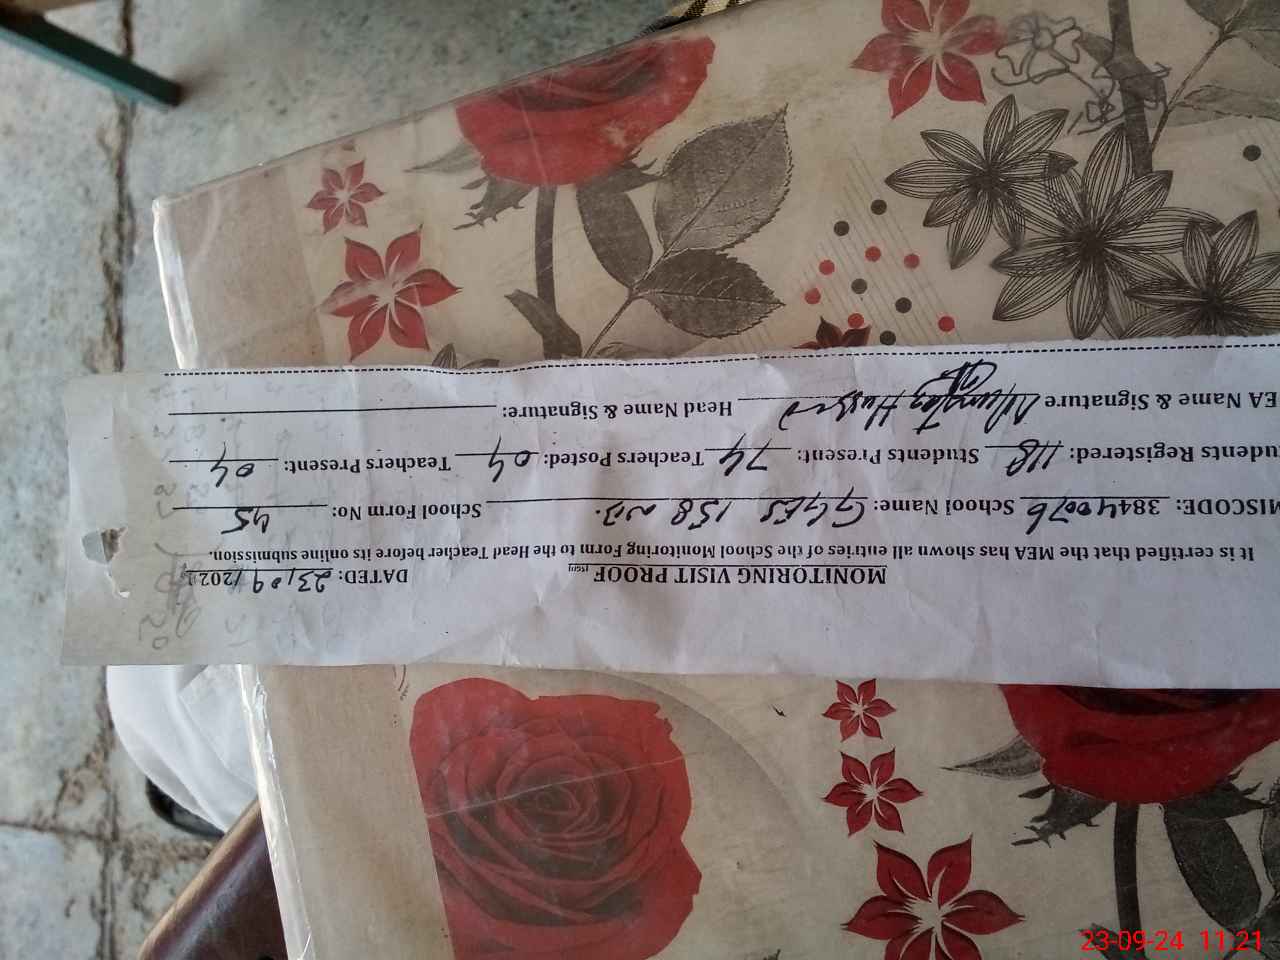 MONITORING VISIT PROOF DATED: 23/09/202
It is certified that the MEA has shown all entries of the School Monitoring Form to the Head Teacher before its online submission.
MISCODE: 38440076 School Name: GGES 158 NB. School Form No: 45
udents Registered: 118 Students Present: 74 Teachers Posted: 04 Teachers Present: 04
EA Name & Signature Hussain Head Name & Signature:
23-09-24 11:21